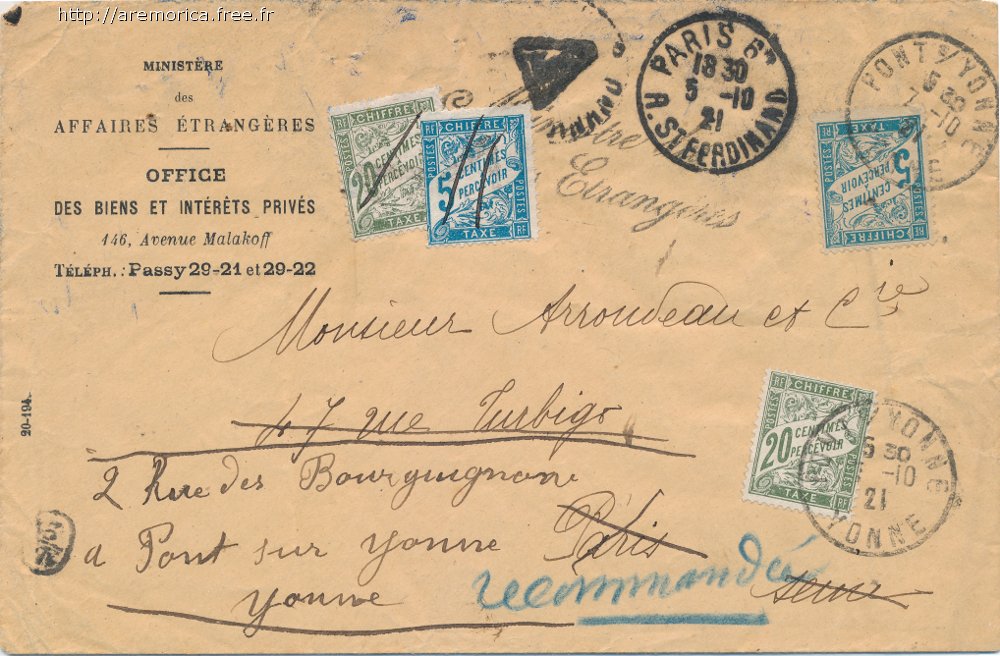 http://aremorica.free.fr
MINISTÈRE
des
AFFAIRES ÉTRANGÈRES
OFFICE
DES BIENS ET INTÉRÊTS PRIVÉS
146, Avenue Malakoff
TÉLÉPH.: Passy 29-21 et 29-22
20-194.
CHIFFRE
RF
POSTES
20 CENTIMES
PERCEVOIR
TAXE
RF CHIFFRE RF
POSTES
5 CENTIMES
PERCEVOIR
POSTES
TAXE
T
Etrangères
PARIS 67
18 30
5 -10
21
R. ST FERDINAND
PONT S/ YONNE
5 30
7 -10
21
TAXE
5 CENTIMES
PERCEVOIR
POSTES
RF CHIFFRE RF
Monsieur Arrondeau et Cie
47 rue Turbigo
2 Rue des Bourguignone
a Pont sur yonne Paris
yonne
recommandée
RF CHIFFRE RF
POSTES
20 CENTIMES
PERCEVOIR
POSTES
TAXE
YONNE
5 30
-10
21
YONNE